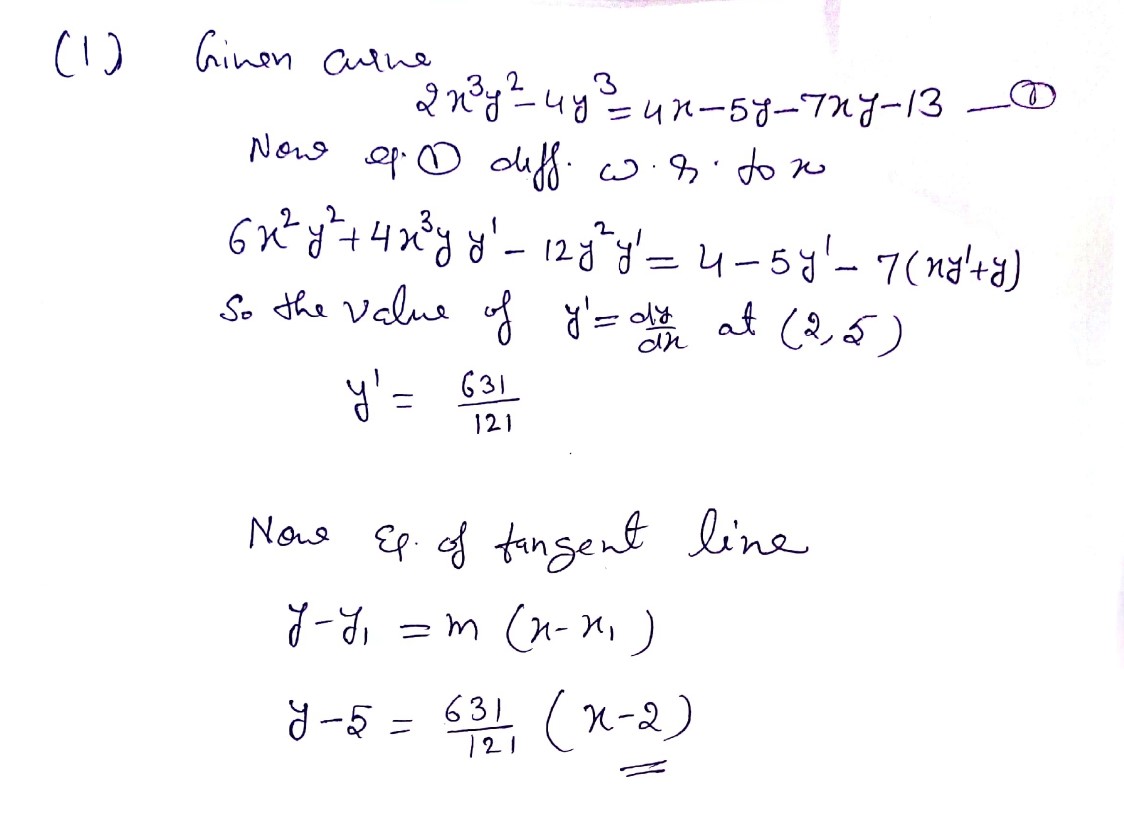 (1) Given curve
2x³y² – 4y³ = 4x – 5y – 7xy – 13 — ①
Now eq. ① diff. w.r. to x
6x²y² + 4x³y y' – 12y²y' = 4 – 5y' – 7(xy'+y)
So the value of y' = dy/dx at (2,5)
y' = 631/121
Now Eq. of tangent line
y – y₁ = m (x – x₁)
y – 5 = 631/121 (x – 2)